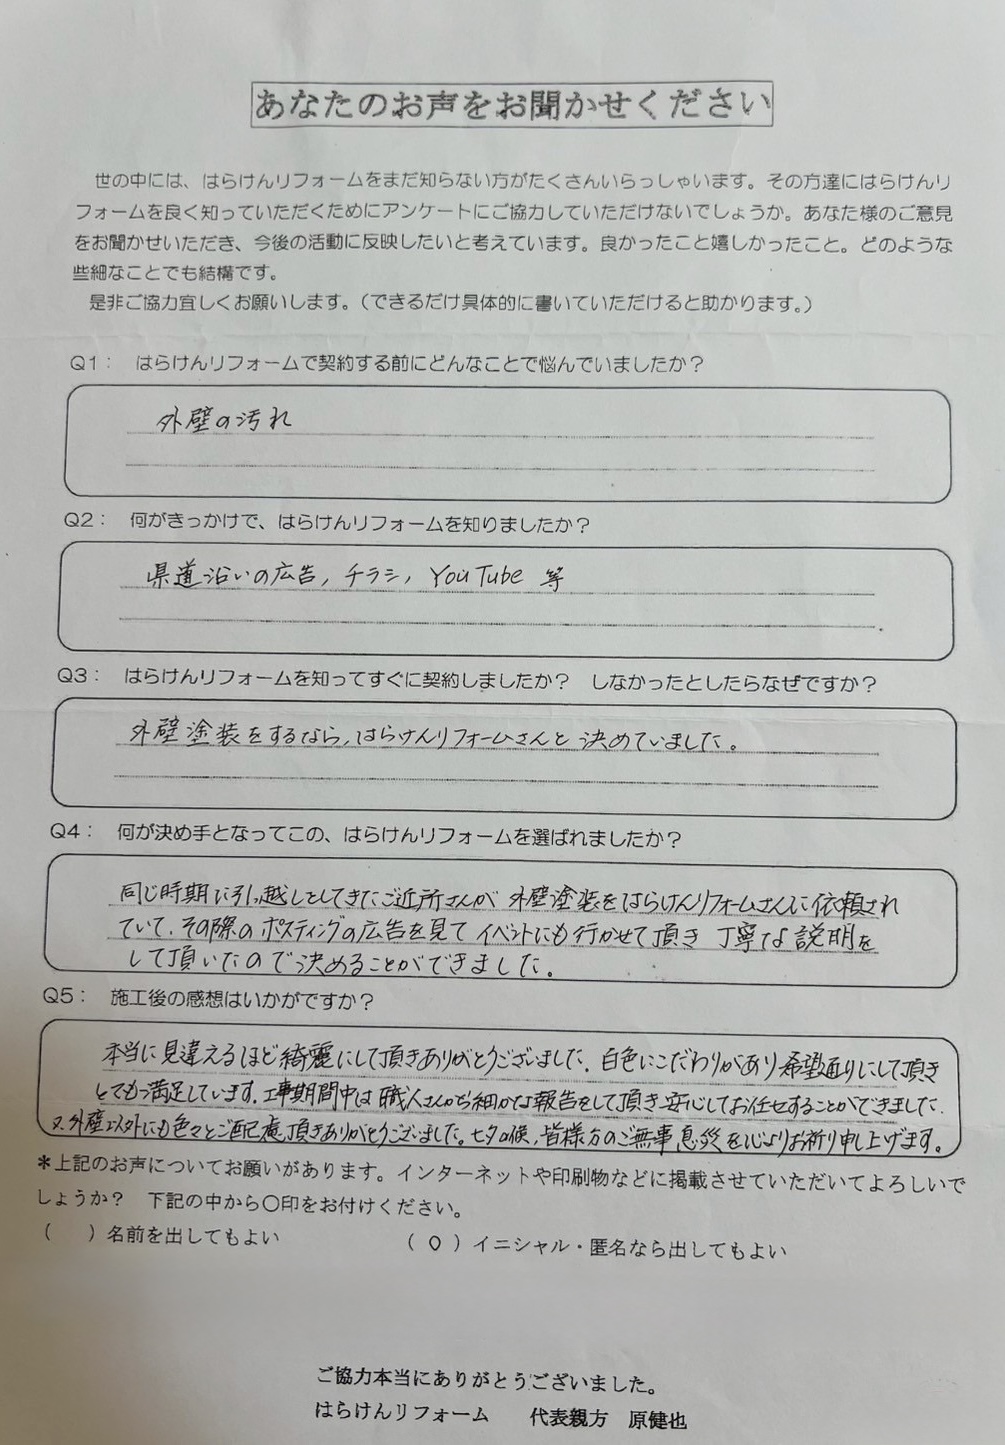 あなたのお声をお聞かせください
世の中には、はらけんリフォームをまだ知らない方がたくさんいらっしゃいます。その方達にはらけんリ
フォームを良く知っていただくためにアンケートにご協力していただけないでしょうか。あなた様のご意見
をお聞かせいただき、今後の活動に反映したいと考えています。良かったこと嬉しかったこと。どのような
些細なことでも結構です。
是非ご協力宜しくお願いします。（できるだけ具体的に書いていただけると助かります。）
Q1： はらけんリフォームで契約する前にどんなことで悩んでいましたか？
外壁の汚れ
Q2： 何がきっかけで、はらけんリフォームを知りましたか？
県道沿いの広告, チラシ, YouTube 等
Q3： はらけんリフォームを知ってすぐに契約しましたか？ しなかったとしたらなぜですか？
外壁塗装をするなら、はらけんリフォームさんと決めていました。
Q4： 何が決め手となってこの、はらけんリフォームを選ばれましたか？
同じ時期に引っ越しをしてきたご近所さんが 外壁塗装をはらけんリフォームさんに依頼され
ていて、その際のポスティングの広告を見て イベントにも行かせて頂き 丁寧な説明を
して頂いたので決めることができました。
Q5： 施工後の感想はいかがですか？
本当に見違えるほど綺麗にして頂きありがとうございました。白色にこだわりがあり希望通りにして頂き
とても満足しています。工事期間中は職人さんから細かな報告をして頂き安心してお任せすることができました。
又、外壁以外にも色々とご配慮頂きありがとうございました。七夕の候、皆様方のご無事息災を心よりお祈り申し上げます。
＊上記のお声についてお願いがあります。インターネットや印刷物などに掲載させていただいてよろしいで
しょうか？ 下記の中から〇印をお付けください。
（　）名前を出してもよい （ ○ ）イニシャル・匿名なら出してもよい
ご協力本当にありがとうございました。
はらけんリフォーム 代表親方 原健也